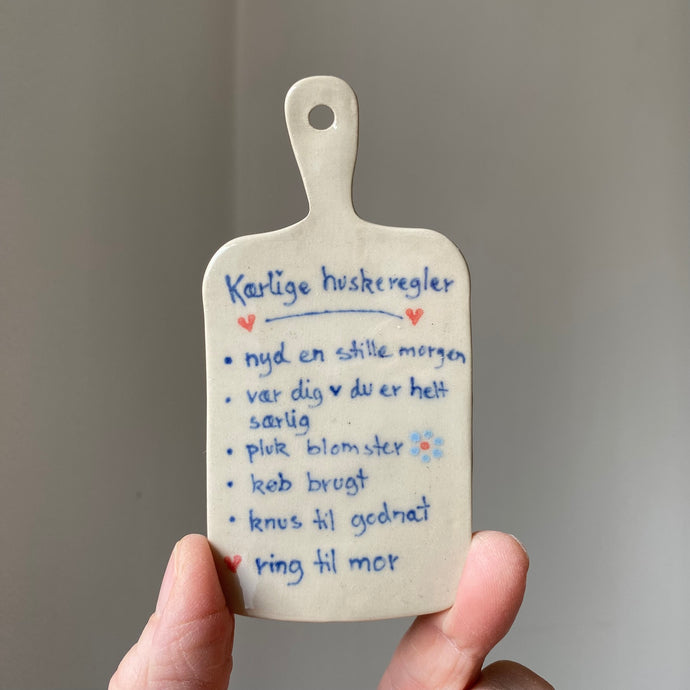 Kærlige huskeregler
• nyd en stille morgen
• vær dig ♥ du er helt
særlig
• pluk blomster
• køb brugt
• knus til godnat
♥ ring til mor